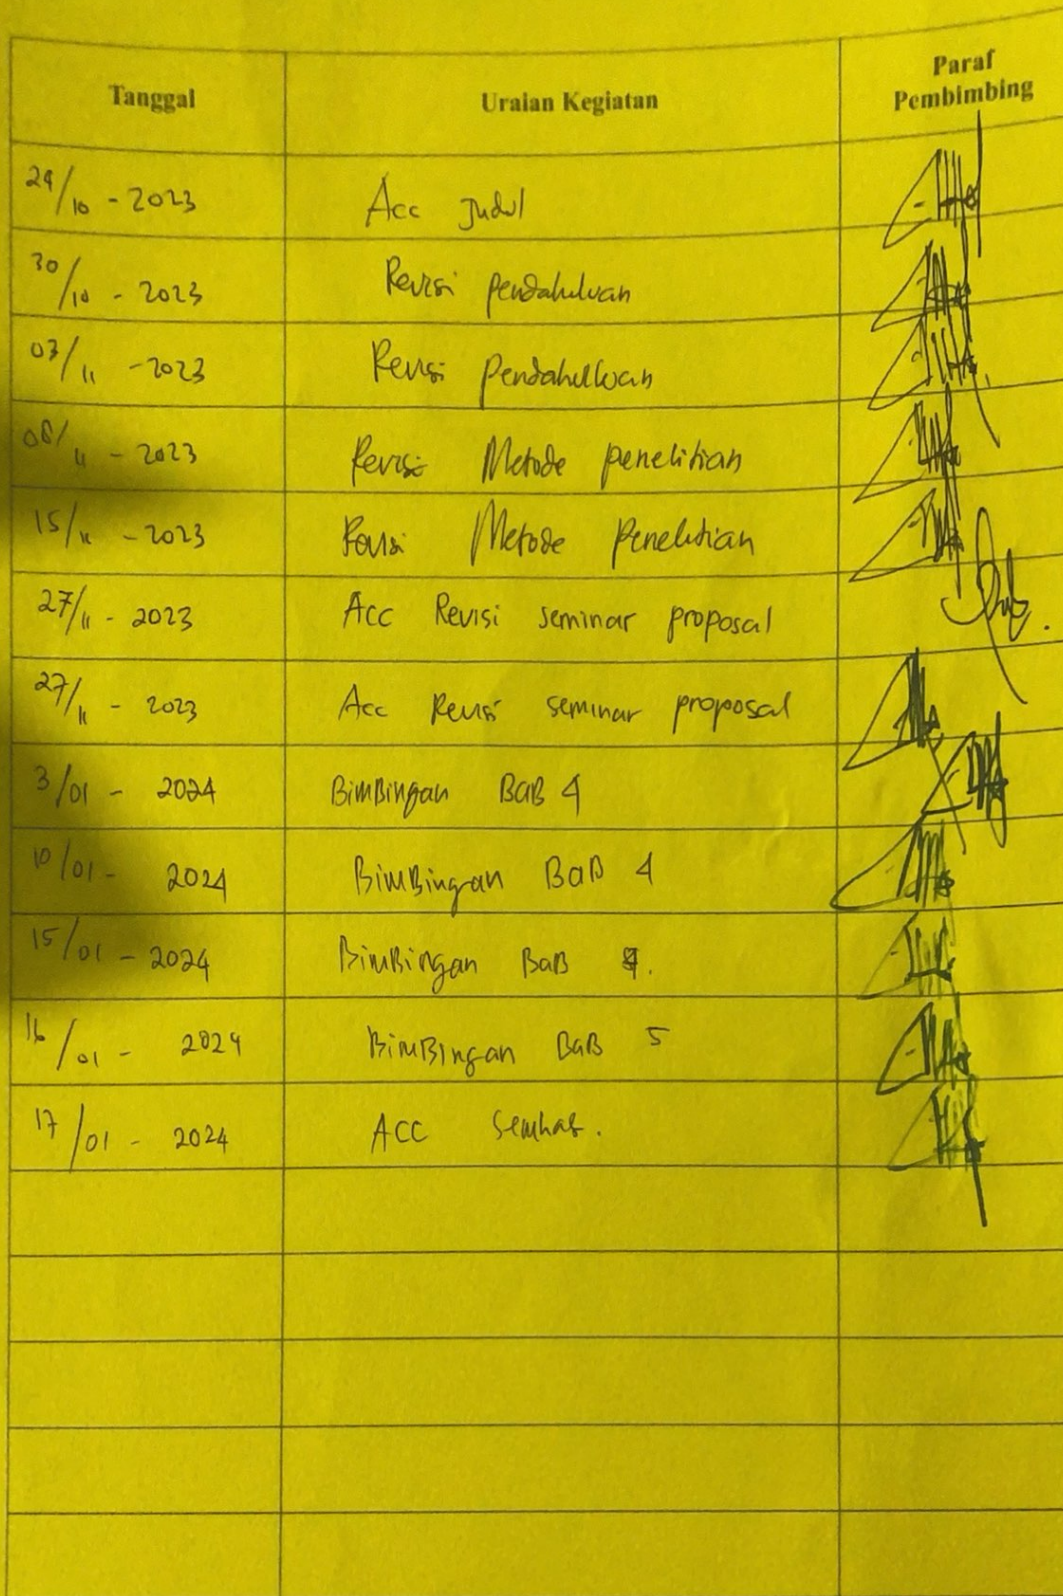 Tanggal Uraian Kegiatan Paraf Pembimbing
29/10 - 2023 Acc Judul
30/10 - 2023 Revisi pendahuluan
03/11 - 2023 Revisi Pendahuluan
08/11 - 2023 Revisi Metode penelitian
15/11 - 2023 Revisi Metode Penelitian
27/11 - 2023 Acc Revisi seminar proposal
27/11 - 2023 Acc Revisi seminar proposal
3/01 - 2024 BimBingan BaB 4
10/01 - 2024 BimBingan BaB 4
15/01 - 2024 BimBingan BaB
16/01 - 2024 BimBingan BaB 5
17/01 - 2024 ACC Semhas.